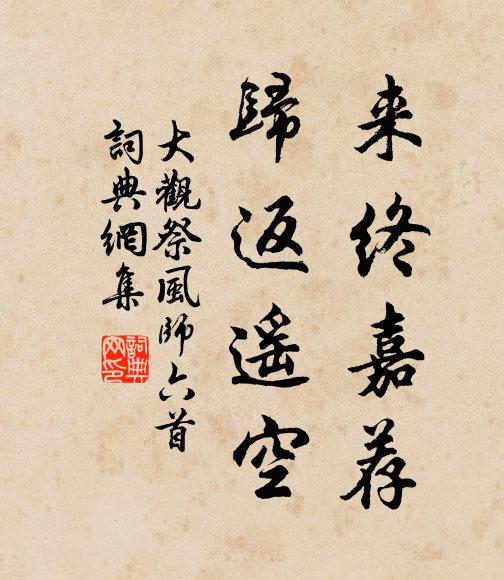 来终嘉荐
歸返遥空
大觀祭風師六首
詞典網集
詞典网印